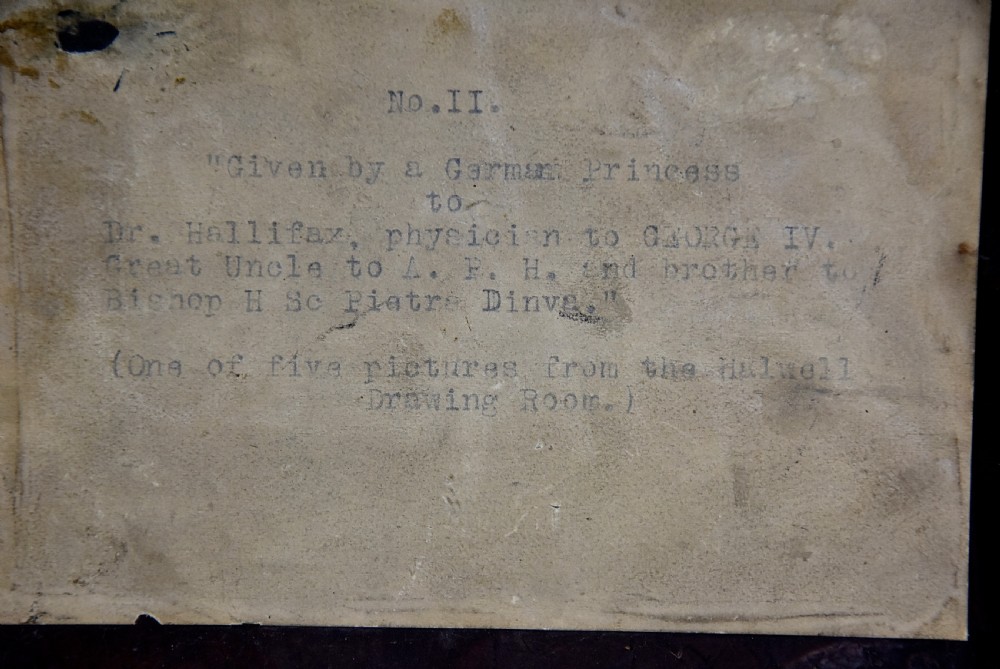 No.II.
"Given by a German Princess
to
Dr. Hallifax, physician to GEORGE IV.
Great Uncle to A. P. H. and brother to
Bishop H Sc Pietra Dinva."
(One of five pictures from the Halwell
Drawing Room.)